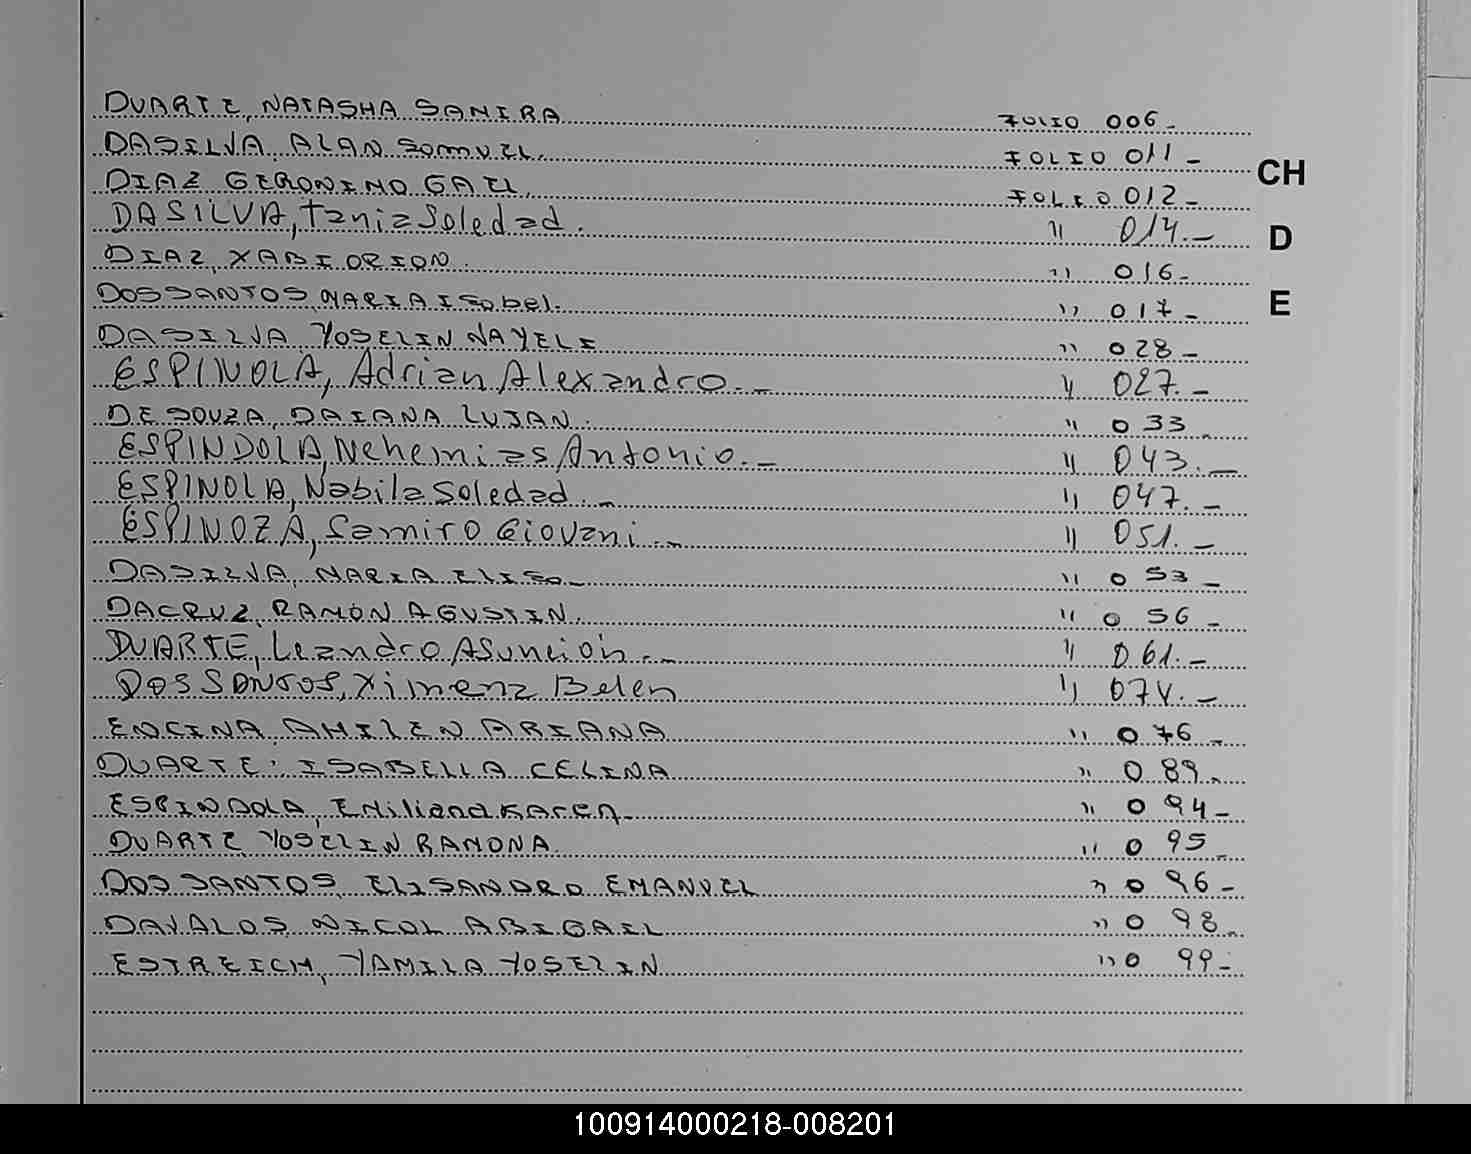 DUARTE, NATASHA SAMIRA FOLIO 006-
DASILVA, ALAN Samuel. FOLIO 011-
CH
DIAZ GERONIMO GAEL, FOLIO 012-
DASILVA, Tania Soledad. " 014.-
D
DIAZ, XABI ORION. " 016-
DOS SANTOS, MARIA Isabel. " 017-
E
DASILVA YOSELIN NAYELI " 028-
ESPINOLA, Adrian Alexandro.- " 027.-
DE SOUZA, DAIANA LUJAN. " 033-
ESPINDOLA, Nehemias Antonio.- " 043.-
ESPINOLA, Nabila Soledad.- " 047.-
ESPINOZA, Ramiro Giovani.- " 051.-
DASILVA, MARIA ELISA- " 053-
DACRUZ, RAMON AGUSTIN. " 056-
DUARTE, Leandro Asunción.- " 061.-
DOS SANTOS, Ximena Belen " 074.-
ENCINA, AMILEN ARIANA " 076-
DUARTE, ISABELLA CELINA " 089-
ESPINDOLA, Emiliana Karen- " 094-
DUARTE YOSELIN RAMONA. " 095-
DOS SANTOS, ELISANDRO EMANUEL " 096-
DAVALOS, NICOL ABIGAIL " 098-
ESTREICH, YAMILA YOSELIN " 099-
100914000218-008201